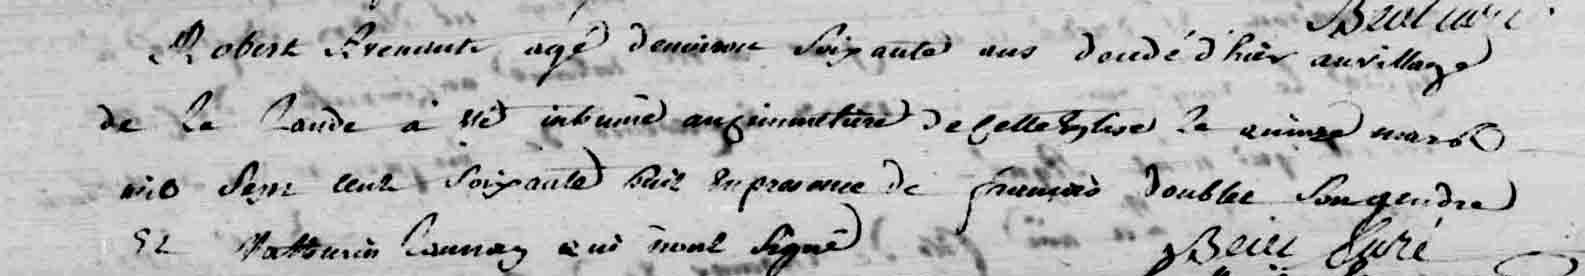 Robert agé denviron Soixante ans decedé d'hier au village
de La Lande à eté inhumé au cimmetiere de Cette Eglise le quinze mars
mil Sept cent Soixante huit En presence de francois doublet Son gendre
Et Mathurin Launay qui n'ont Signé
Curé